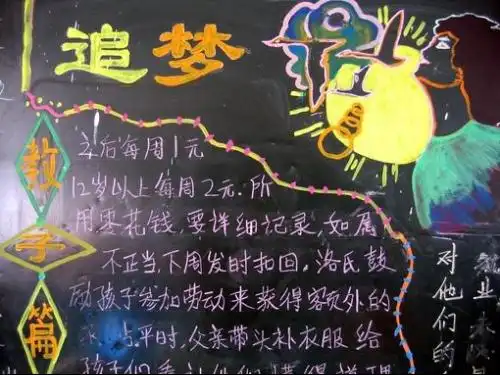 追梦
教子篇
之后每周1元
12岁以上每周2元.所
用零花钱,要详细记录,如属
不正当,下周发时扣回。洛氏鼓
励孩子参加劳动来获得额外的
平时,父亲带头补衣服给
孩子们看让他们懂得道理
就业
对他们的